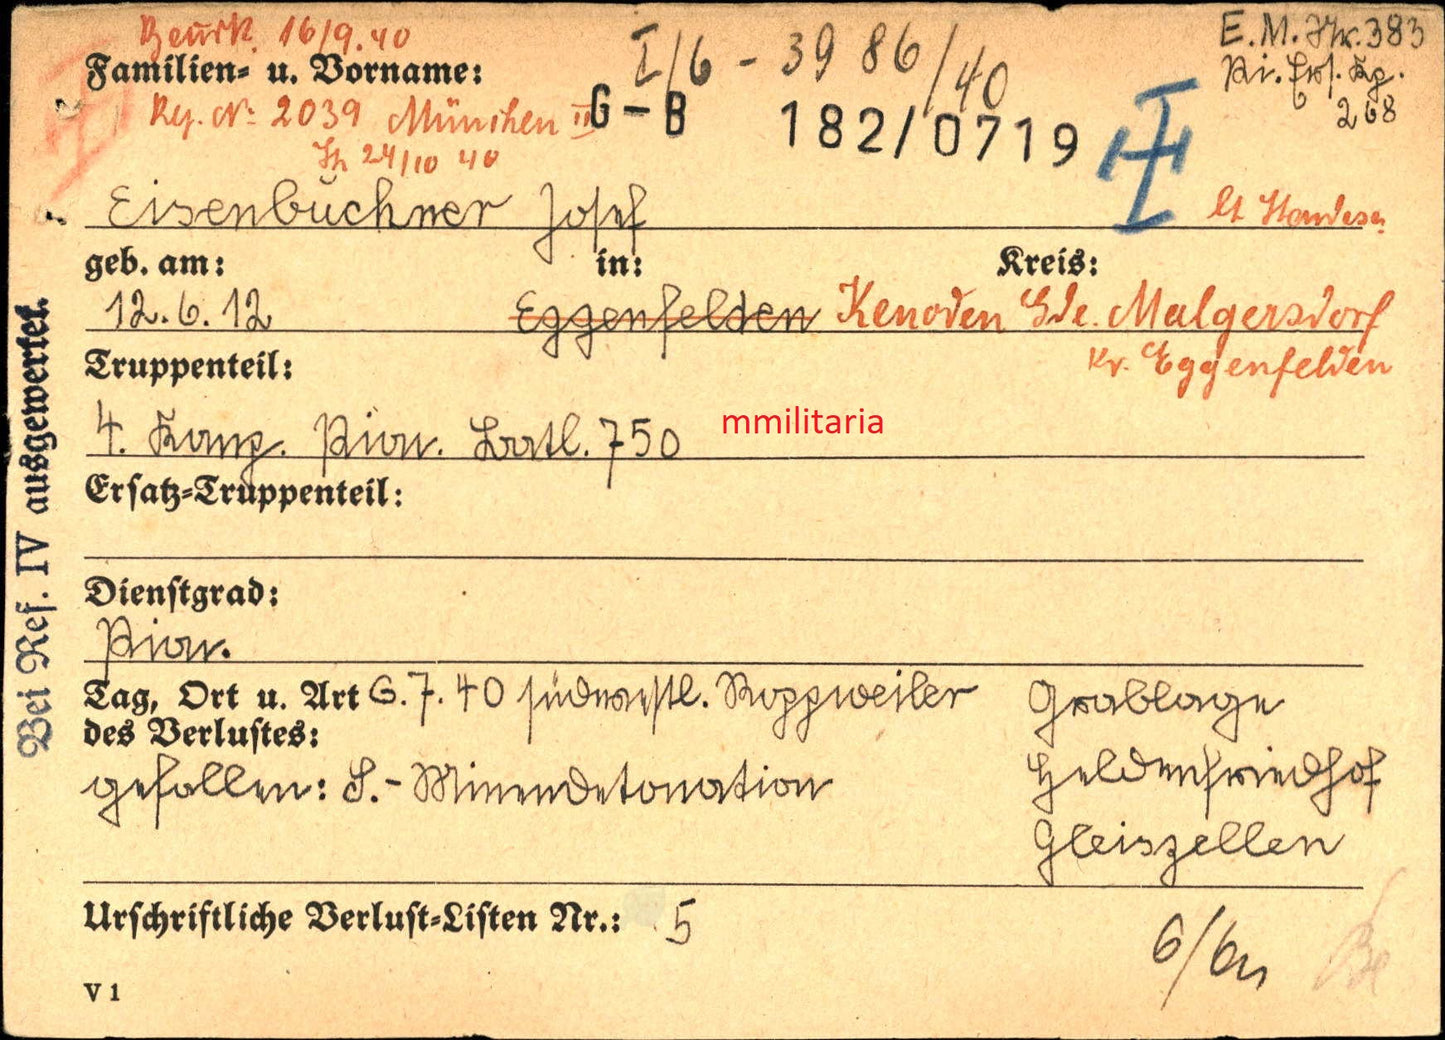 Beurk. 16/9.40
I/6 - 3986/40
E.M.Nr. 383
Familien- u. Vorname:
Pi. Ers. Kp.
268
Reg. Nr 2039 München III
G-B 182/0719
24/10 40
Eisenbüchner Josef
lt Standesa.
geb. am: in: Kreis:
12.6.12 Eggenfelden Kenoden Gde. Malgersdorf
Kr. Eggenfelden
Truppenteil:
4. Komp. Pion. Batl. 750
mmilitaria
Ersatz-Truppenteil:
Dienstgrad:
Pion.
Tag, Ort u. Art 6.7.40 südwestl. Roppweiler
des Verlustes:
gefallen: S.-Minendetonation
Grablage
Heldenfriedhof
Gleiszellen
Urschriftliche Verlust-Listen Nr.: 5
V 1
Bei Ref. IV ausgewertet.